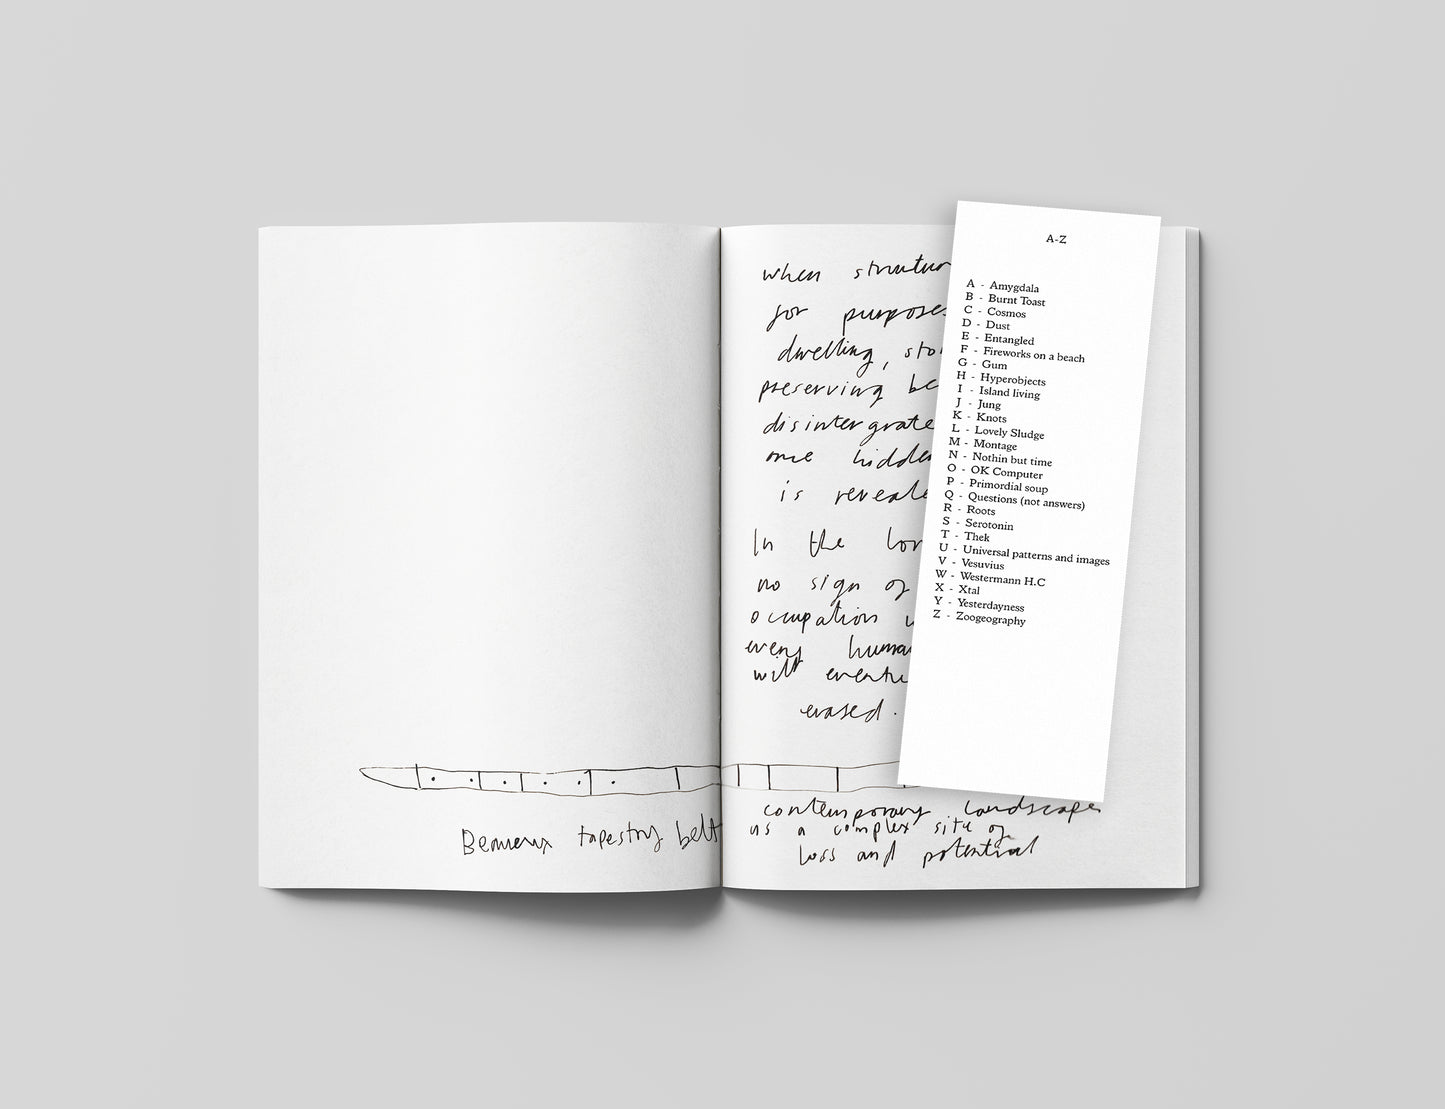 tapestry belt
when structur
for purposes
dwelling, sto
preserving be
disintergrate
once hidden
is reveale
In the lon
no sign of
occupation
every huma
will eventu
erased.
contemporary landscape
as a complex site of
loss and potential
A-Z
A - Amygdala
B - Burnt Toast
C - Cosmos
D - Dust
E - Entangled
F - Fireworks on a beach
G - Gum
H - Hyperobjects
I - Island living
J - Jung
K - Knots
L - Lovely Sludge
M - Montage
N - Nothin but time
O - OK Computer
P - Primordial soup
Q - Questions (not answers)
R - Roots
S - Serotonin
T - Thek
U - Universal patterns and images
V - Vesuvius
W - Westermann H.C
X - Xtal
Y - Yesterdayness
Z - Zoogeography